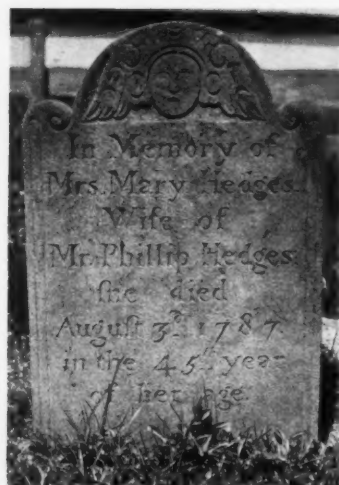 In Memory of
Mrs. Mary Hedges
Wife of
Mr. Phillip Hedges
ſhe died
Auguſt 3ᵈ 1787
in the 45ᵗʰ year
of her age.